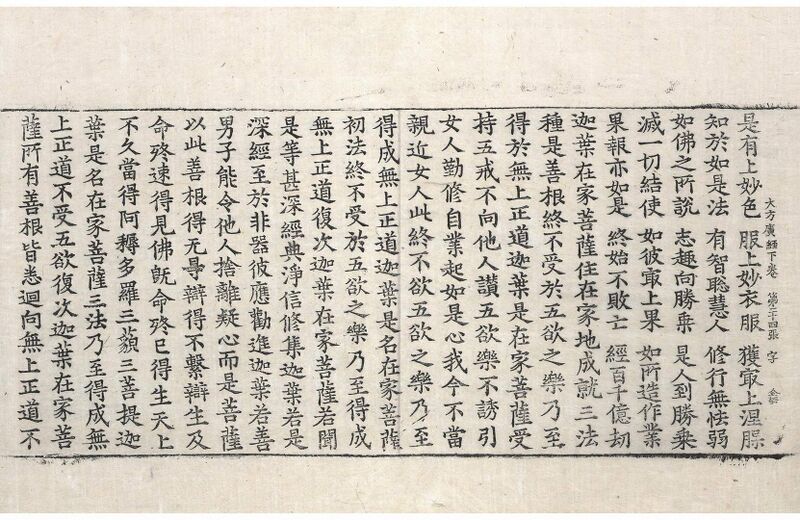 是有上妙色　服上妙衣服　獲㝡上涅槃
大方廣經下卷　第二十四張　字
知於如是法　有智聡慧人　修行無怯弱
如佛之所說　志趣向勝乗　是人到勝乗
滅一切結使　如彼㝡上果　如所造作業
果報亦如是　終始不敗亡　經百千億劫
迦葉在家菩薩住在家地成就三法
種是善根終不受於五欲之樂乃至
得於無上正道迦葉是在家菩薩受
持五戒不向他人讃五欲樂不誘引
女人勤修自業起如是心我今不當
親近女人此終不欲五欲之樂乃至
得成無上正道迦葉是名在家菩薩
初法終不受於五欲之樂乃至得成
無上正道復次迦葉在家菩薩若聞
是等甚深經典淨信修集迦葉若是
深經至於非器彼應勸進迦葉若善
男子能令他人捨離疑心而是菩薩
以此善根得无㝵辯得不繫辯生及
命終速得見佛旣命終已得生天上
不久當得阿耨多羅三藐三菩提迦
葉是名在家菩薩三法乃至得成無
上正道不受五欲復次迦葉在家菩
薩所有善根皆悉迴向無上正道不